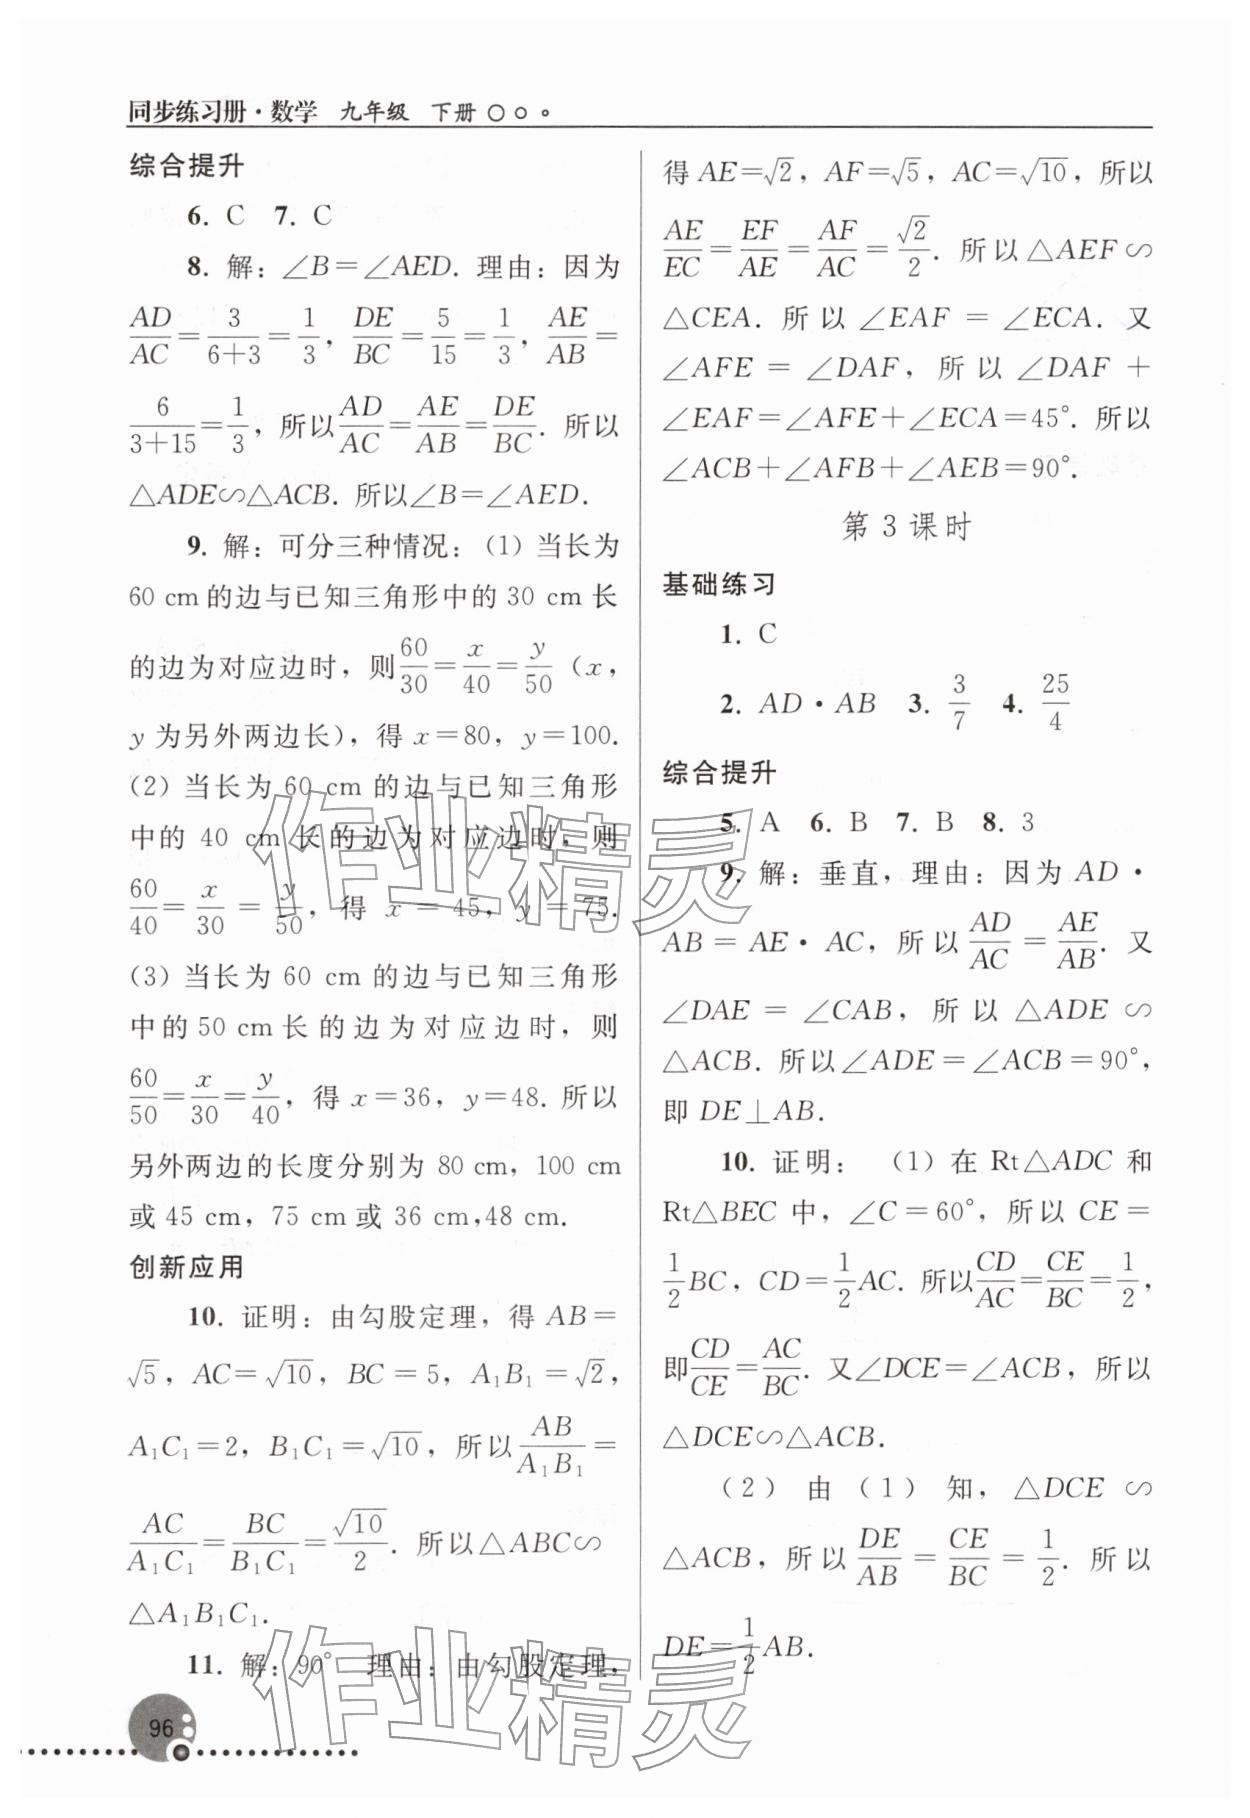 同步练习册·数学 九年级 下册
综合提升
6. C 7. C
8. 解：∠B=∠AED. 理由：因为
AD/AC=3/(6+3)=1/3，DE/BC=5/15=1/3，AE/AB=
6/(3+15)=1/3，所以AD/AC=AE/AB=DE/BC. 所以
△ADE∽△ACB. 所以∠B=∠AED.
9. 解：可分三种情况：(1) 当长为
60 cm 的边与已知三角形中的 30 cm 长
的边为对应边时，则60/30=x/40=y/50（x，
y 为另外两边长），得 x=80，y=100.
(2) 当长为 60 cm 的边与已知三角形
中的 40 cm 长的边为对应边时，则
60/40=x/30=y/50，得 x=45，y=75.
(3) 当长为 60 cm 的边与已知三角形
中的 50 cm 长的边为对应边时，则
60/50=x/30=y/40，得 x=36，y=48. 所以
另外两边的长度分别为 80 cm，100 cm
或 45 cm，75 cm 或 36 cm,48 cm.
创新应用
10. 证明：由勾股定理，得 AB=
√5，AC=√10，BC=5，A₁B₁=√2，
A₁C₁=2，B₁C₁=√10，所以AB/A₁B₁=
AC/A₁C₁=BC/B₁C₁=√10/2. 所以△ABC∽
△A₁B₁C₁.
11. 解：90° 理由：由勾股定理，
96
得 AE=√2，AF=√5，AC=√10，所以
AE/EC=EF/AE=AF/AC=√2/2. 所以△AEF∽
△CEA. 所以∠EAF=∠ECA. 又
∠AFE=∠DAF，所以∠DAF+
∠EAF=∠AFE+∠ECA=45°. 所以
∠ACB+∠AFB+∠AEB=90°.
第 3 课时
基础练习
1. C
2. AD·AB 3. 3/7 4. 25/4
综合提升
5. A 6. B 7. B 8. 3
9. 解：垂直，理由：因为 AD·
AB=AE·AC，所以AD/AC=AE/AB. 又
∠DAE=∠CAB，所以△ADE∽
△ACB. 所以∠ADE=∠ACB=90°，
即 DE⊥AB.
10. 证明：(1) 在 Rt△ADC 和
Rt△BEC 中，∠C=60°，所以 CE=
1/2BC，CD=1/2AC. 所以CD/AC=CE/BC=1/2，
即CD/CE=AC/BC. 又∠DCE=∠ACB，所以
△DCE∽△ACB.
(2) 由 (1) 知，△DCE∽
△ACB，所以DE/AB=CE/BC=1/2. 所以
DE=1/2AB.
作业精灵
作业精灵